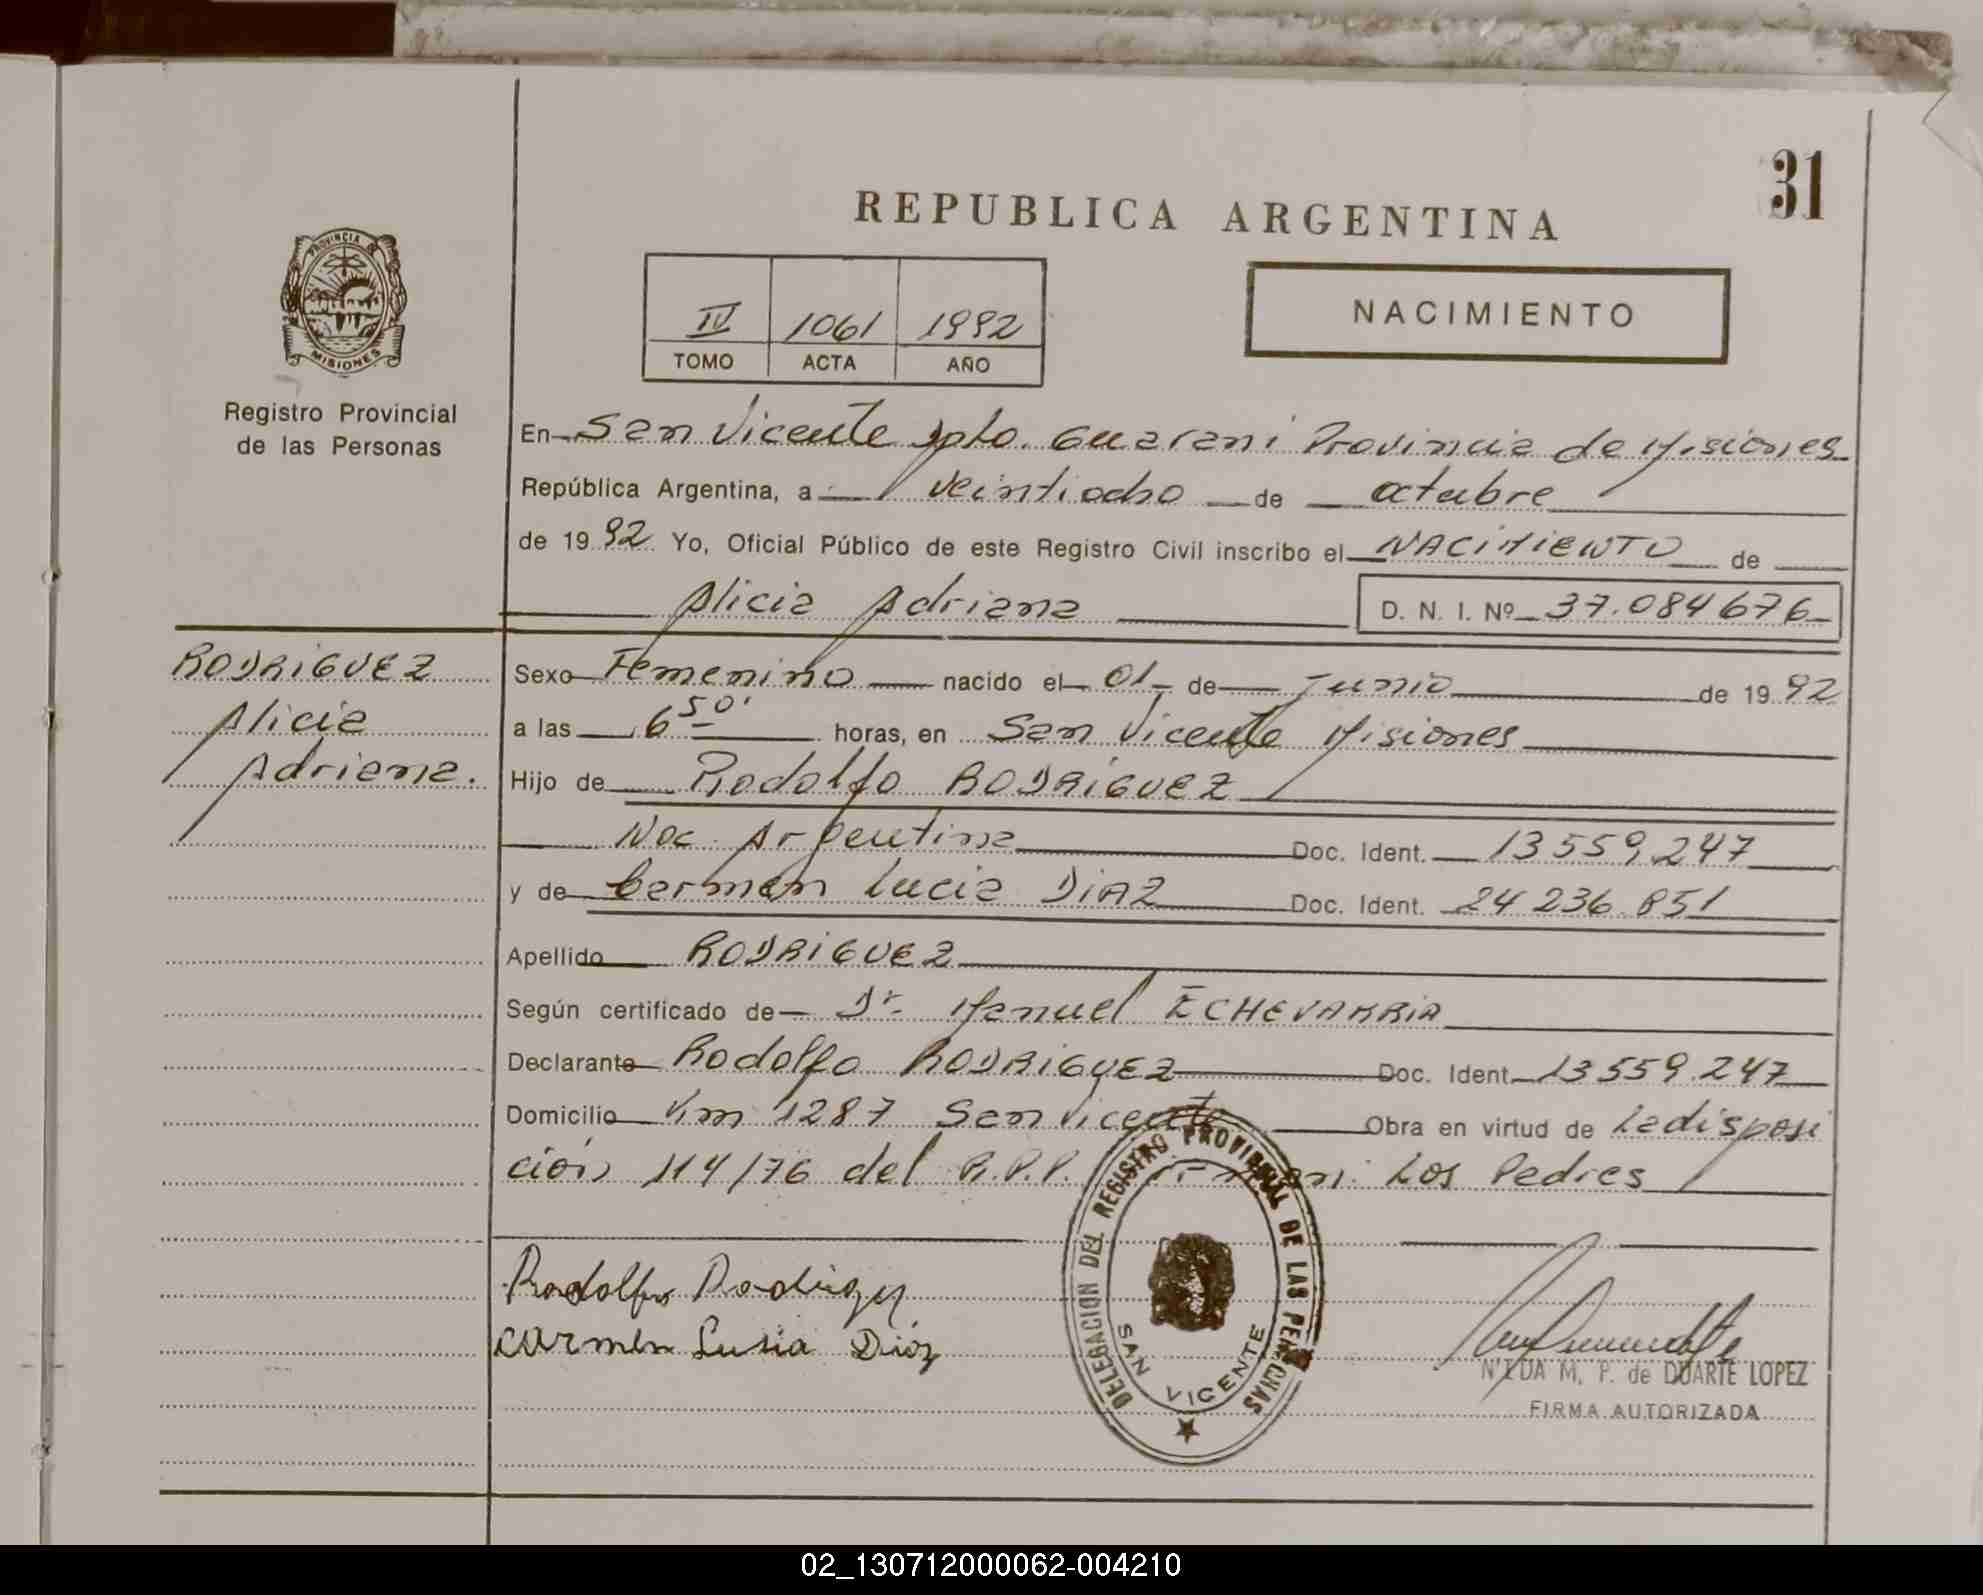 31
REPUBLICA ARGENTINA
PROVINCIA DE
MISIONES
Registro Provincial
de las Personas
IV 1061 1992
TOMO ACTA AÑO
NACIMIENTO
En San Vicente Dpto. Guarani Provincia de Misiones
República Argentina, a veintiocho de octubre
de 1992 Yo, Oficial Público de este Registro Civil inscribo el NACIMIENTO de
Alicia Adriana D. N. I. Nº 37.084676
RODRIGUEZ
Alicia
Adriana.
Sexo Femenino nacido el 01 de Junio de 1992
a las 6 50' horas, en San Vicente Misiones
Hijo de Rodolfo RODRIGUEZ
Nac. Argentina Doc. Ident. 13559,247
y de Carmen Lucia DIAZ Doc. Ident. 24 236 851
Apellido RODRIGUEZ
Según certificado de Dr. Manuel ECHEVARRIA
Declarante Rodolfo RODRIGUEZ Doc. Ident. 13559.247
Domicilio Km 1287 San Vicente Obra en virtud de La disposi
ción 114/76 del R.P.P. Los Padres
Rodolfo Rodriguez
carmen Lusia Diaz
DELEGACION DEL REGISTRO PROVINCIAL DE LAS PERSONAS
SAN VICENTE
M. P. de DUARTE LOPEZ
FIRMA AUTORIZADA
02_130712000062-004210